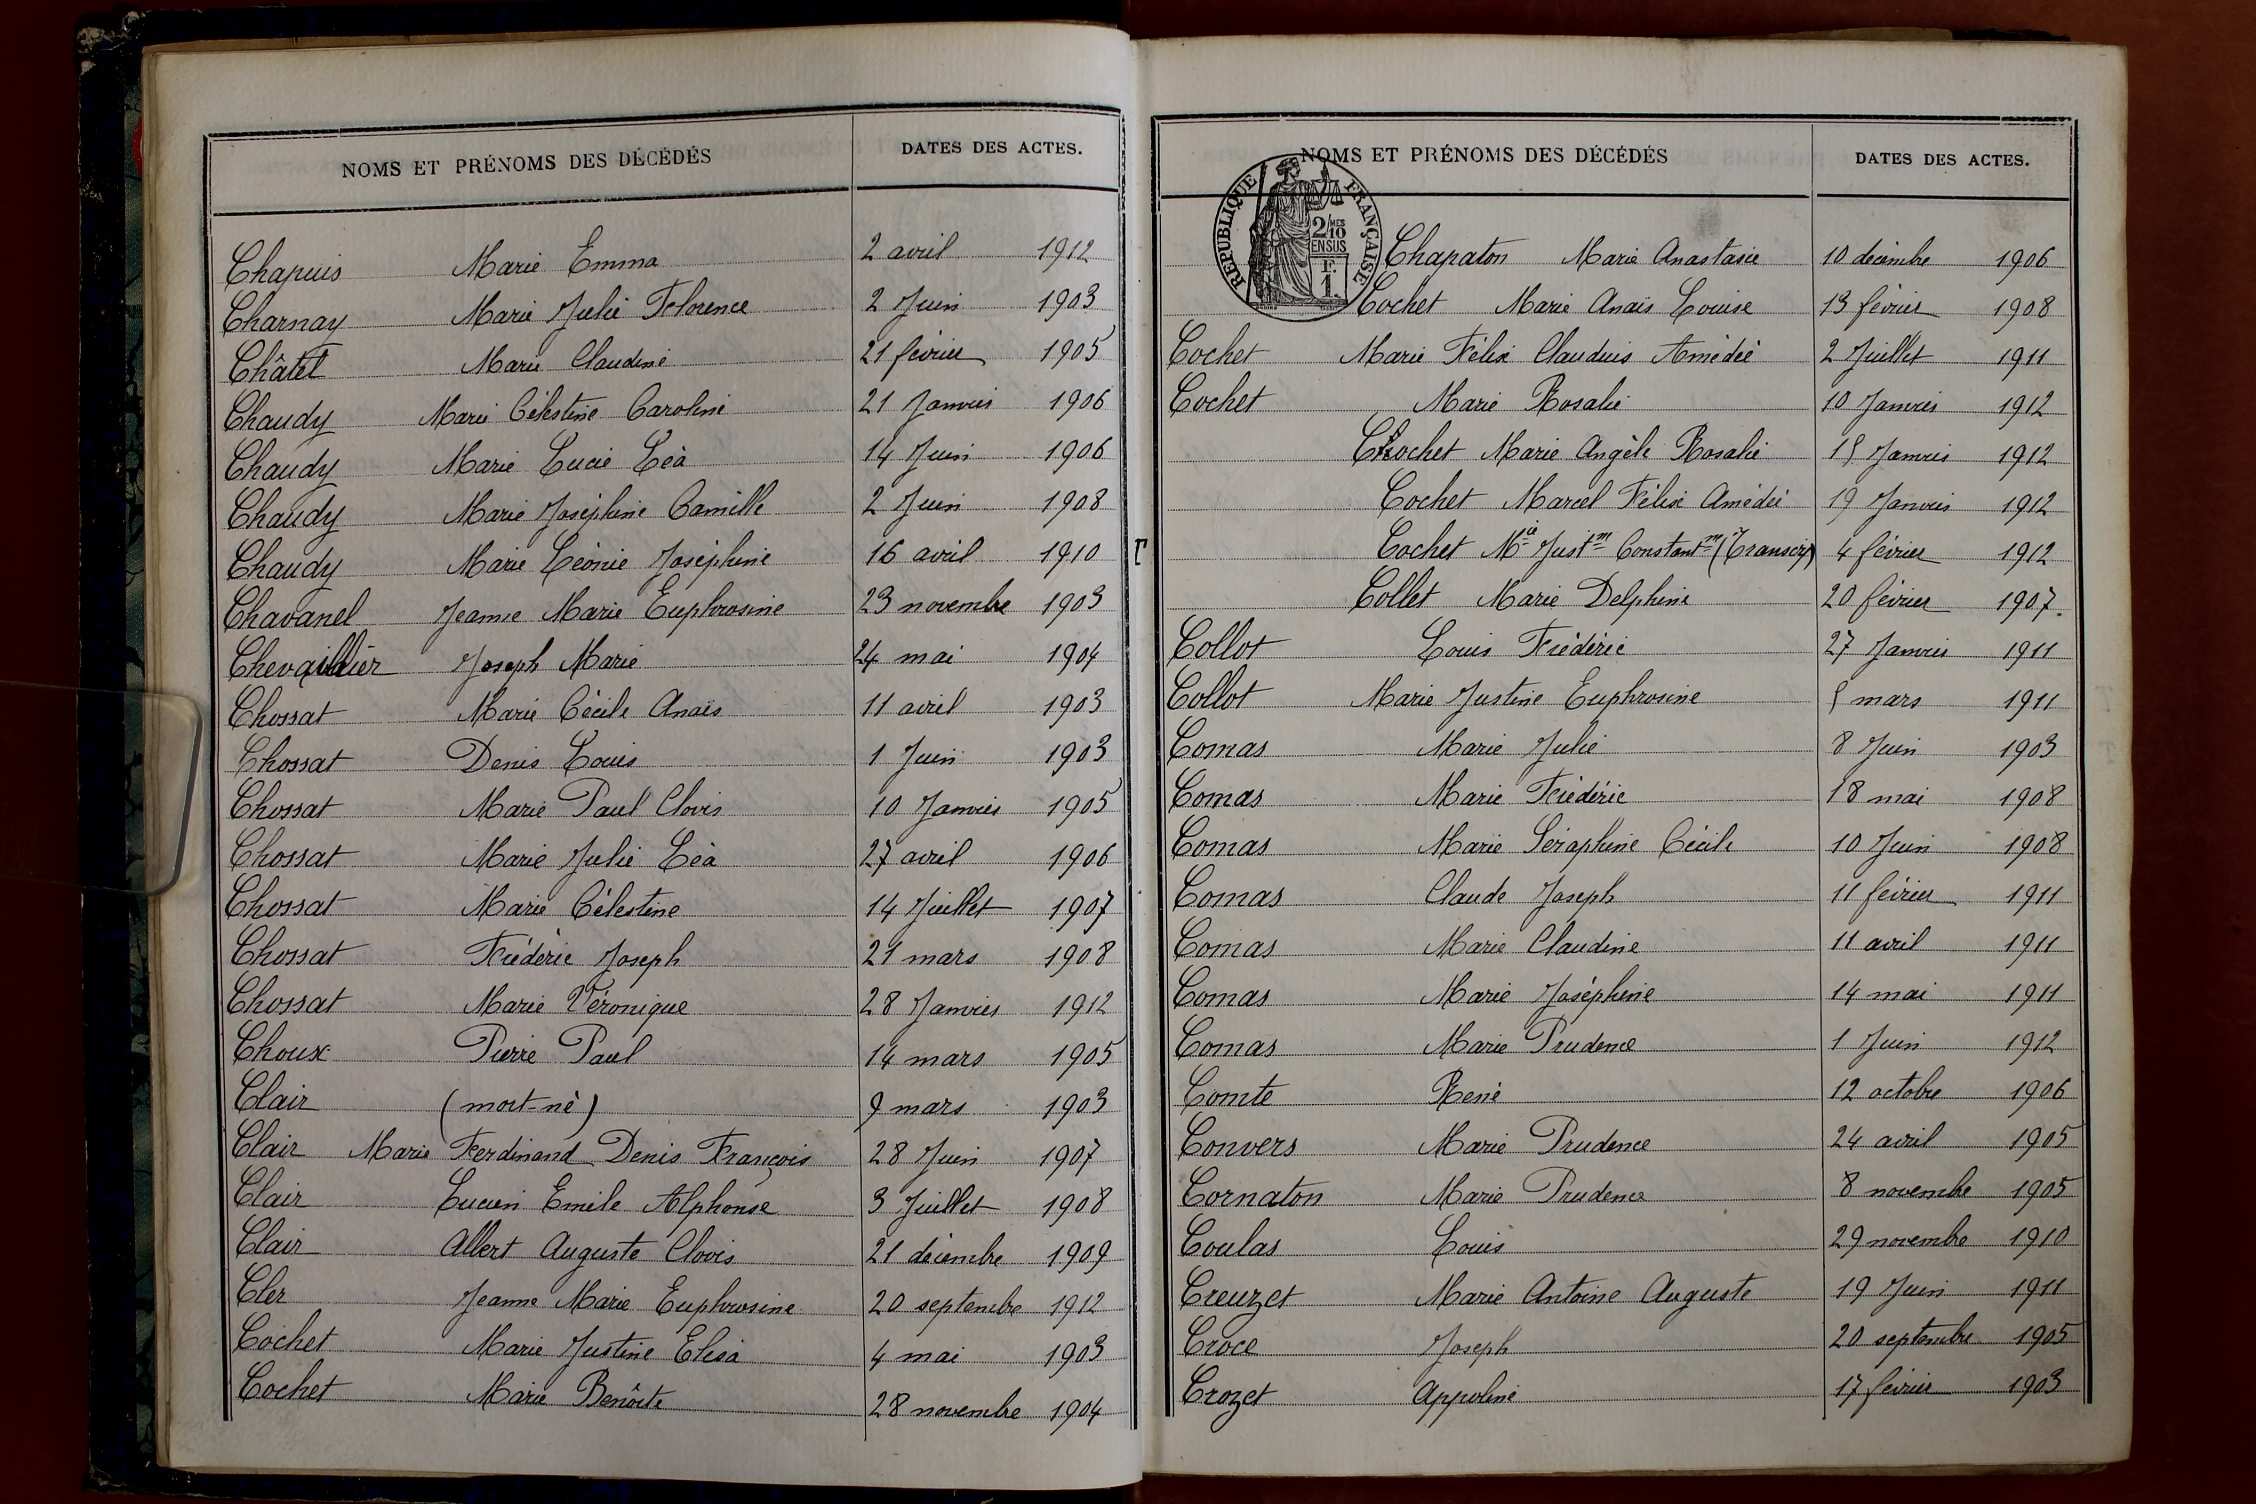 NOMS ET PRÉNOMS DES DÉCÉDÉS DATES DES ACTES.
Chapuis Marie Emma 2 avril 1912
Charnay Marie Julie Florence 2 Juin 1903
Châtel Marie Claudine 21 février 1905
Chaudy Marie Célestine Caroline 21 Janvier 1906
Chaudy Marie Lucie Léà 14 Juin 1906
Chaudy Marie Joséphine Camille 2 Juin 1908
Chaudy Marie Léonie Joséphine 16 avril 1910
Chavanel Jeanne Marie Euphrosine 23 novembre 1903
Joseph Marie 24 mai 1904
Chossat Marie Cécile Anaïs 11 avril 1903
Chossat Denis Louis 1 Juin 1903
Chossat Marie Paul Clovis 10 Janvier 1905
Chossat Marie Julie Léà 27 avril 1906
Chossat Marie Célestine 14 Juillet 1907
Chossat Frédéric Joseph 21 mars 1908
Chossat Marie Véronique 28 Janvier 1912
Choux Pierre Paul 14 mars 1905
Clair (mort-né) 9 mars 1903
Clair Marie Ferdinand Denis François 28 Juin 1907
Clair Lucien Emile Alphonse 3 Juillet 1908
Clair Albert Auguste Clovis 21 décembre 1909
Cler Jeanne Marie Euphrosine 20 septembre 1912
Cochet Marie Justine Elisa 4 mai 1903
Cochet Marie Benôite 28 novembre 1904
NOMS ET PRÉNOMS DES DÉCÉDÉS DATES DES ACTES.
RÉPUBLIQUE FRANÇAISE
2/MES
10
EN SUS
F.
1.
Chapaton Marie Anastasie 10 décembre 1906
Cochet Marie Anaïs Louise 13 février 1908
Cochet Marie Félix Claudius Amédée 2 Juillet 1911
Cochet Marie Rosalie 10 Janvier 1912
Cochet Marie Angèle Rosalie 15 Janvier 1912
Cochet Marcel Félix Amédée 19 Janvier 1912
Cochet Mie Justin Constantin (Transcrip) 4 février 1912
Collet Marie Delphine 20 février 1907.
Collot Louis Frédéric 27 Janvier 1911
Collot Marie Justine Euphrosine 5 mars 1911
Comas Marie Julie 8 Juin 1903
Comas Marie Frédéric 18 mai 1908
Comas Marie Séraphine Cécile 10 Juin 1908
Comas Claude Joseph 11 février 1911
Comas Marie Claudine 11 avril 1911
Comas Marie Joséphine 14 mai 1911
Comas Marie Prudence 1 Juin 1912
Comte René 12 octobre 1906
Convers Marie Prudence 24 avril 1905
Cornaton Marie Prudence 8 novembre 1905
Coulas Louis 29 novembre 1910
Creuzet Marie Antoine Auguste 19 Juin 1911
Croce Joseph 20 septembre 1905
Crozet Appoline 17 février 1903